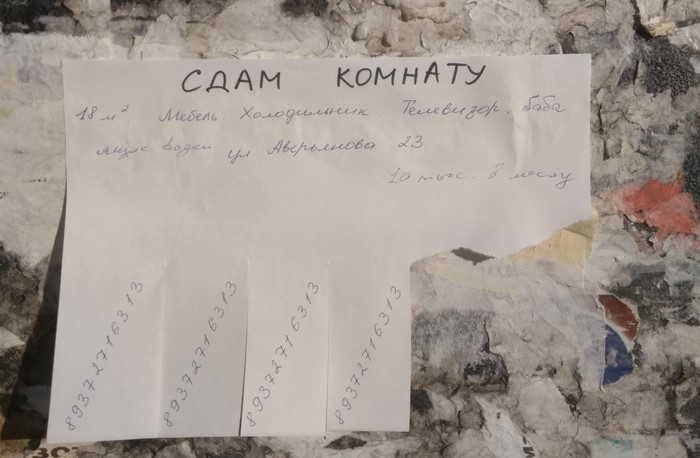 СДАМ КОМНАТУ
18 м² Мебель. Холодильник Телевизор, баба
ящик водки ул. Аверьянова 23
10 тыс. в месяц
89372716313
89372716313
89372716313
89372716313